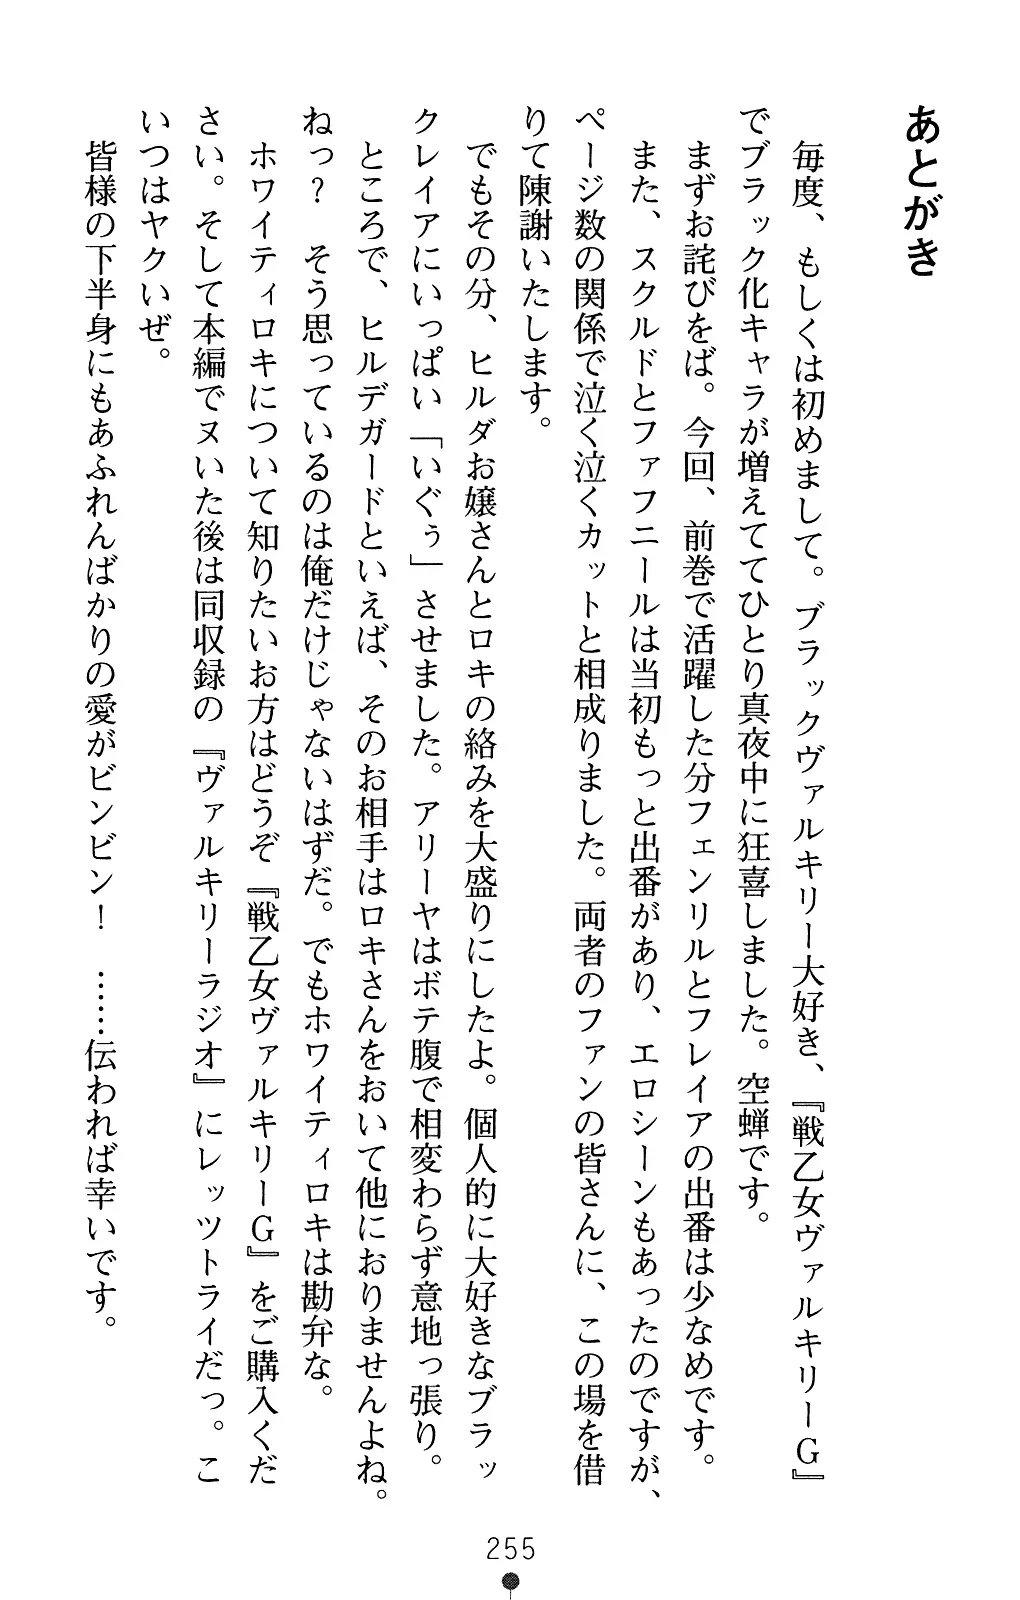 あとがき
毎度、もしくは初めまして。ブラックヴァルキリー大好き、『戦乙女ヴァルキリーG』
でブラック化キャラが増えててひとり真夜中に狂喜しました。空蝉です。
まずお詫びをば。今回、前巻で活躍した分フェンリルとフレイアの出番は少なめです。
また、スクルドとファフニールは当初もっと出番があり、エロシーンもあったのですが、
ページ数の関係で泣く泣くカットと相成りました。両者のファンの皆さんに、この場を借
りて陳謝いたします。
でもその分、ヒルダお嬢さんとロキの絡みを大盛りにしたよ。個人的に大好きなブラッ
クレイアにいっぱい「いぐぅ」させました。アリーヤはボテ腹で相変わらず意地っ張り。
ところで、ヒルデガードといえば、そのお相手はロキさんをおいて他におりませんよね。
ねっ？　そう思っているのは俺だけじゃないはずだ。でもホワイティロキは勘弁な。
ホワイティロキについて知りたいお方はどうぞ『戦乙女ヴァルキリーG』をご購入くだ
さい。そして本編でヌいた後は同収録の『ヴァルキリーラジオ』にレッツトライだっ。こ
いつはヤクいぜ。
皆様の下半身にもあふれんばかりの愛がビンビン！　……伝われば幸いです。
255